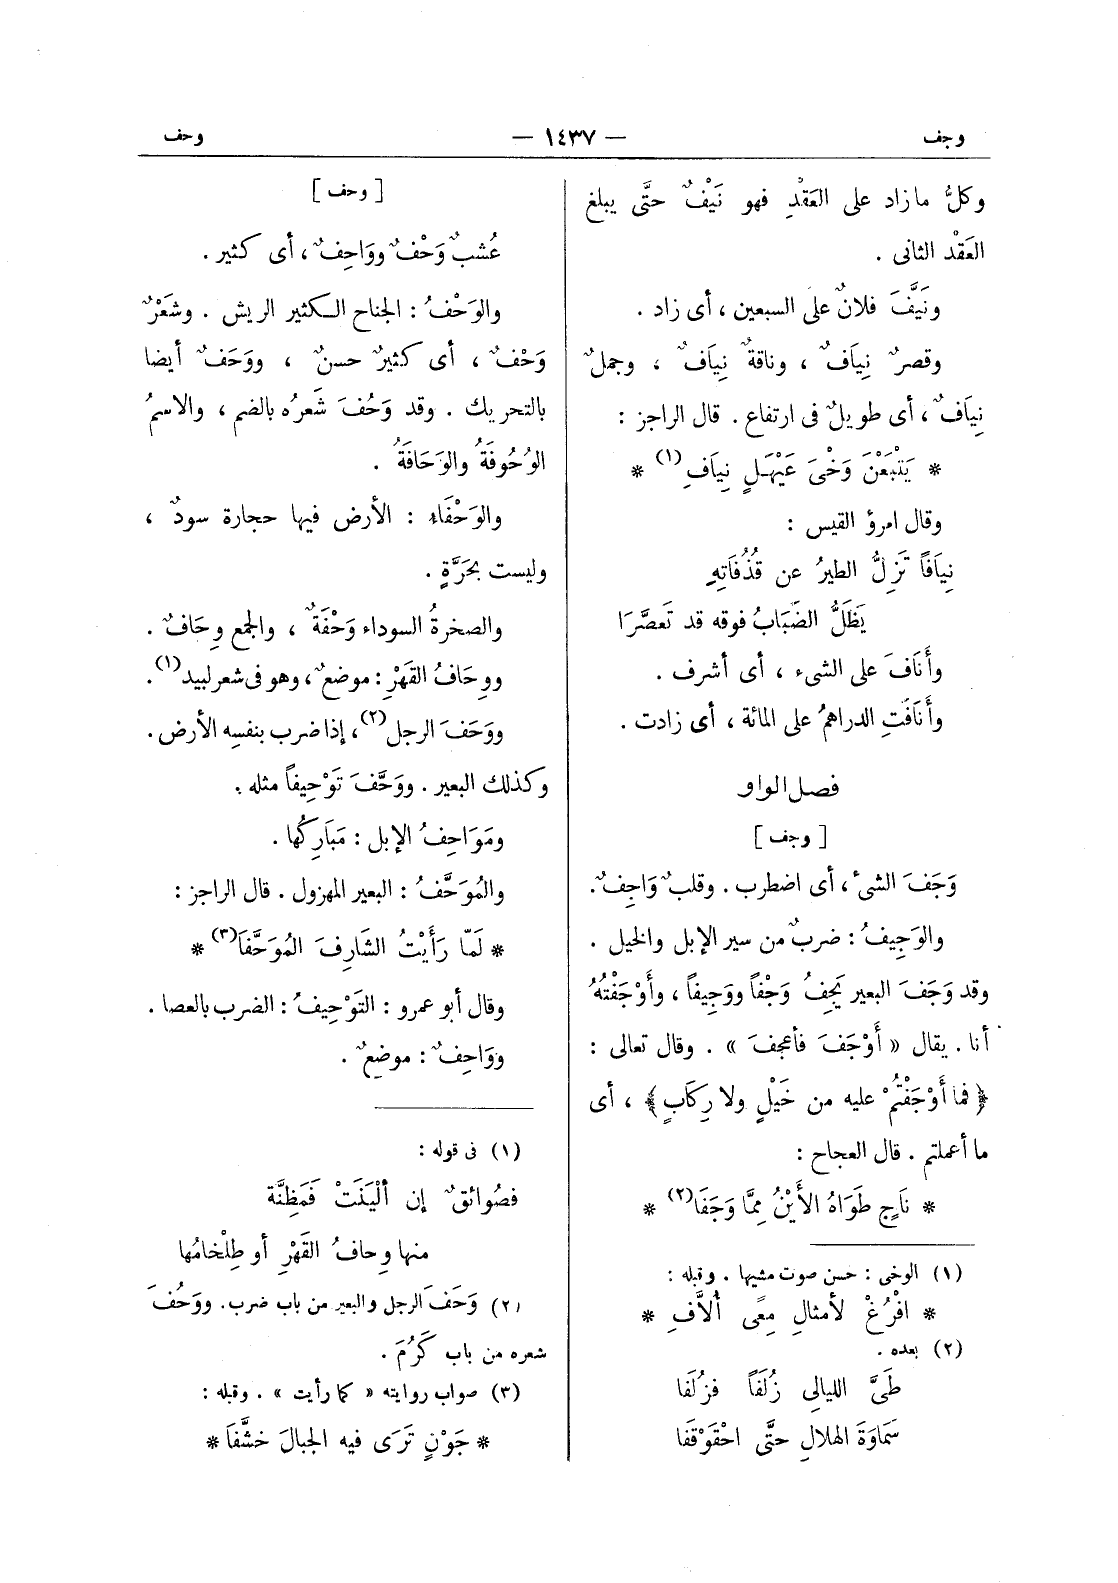 وجف — ١٤٣٧ — وحف
وكلُّ ما زاد على العَقْدِ فهو نَيْفٌ حتَّى يبلغ
العَقْد الثانى .
ونَيَّفَ فلانٌ على السبعين ، أى زاد .
وقصرٌ نِيَافٌ ، وناقةٌ نِيَافٌ ، وجملٌ
نِيَافٌ ، أى طويلٌ فى ارتفاع . قال الراجز :
* يَتْبَعْنَ وَخْىَ عَيْهَلٍ نِيَافِ (١) *
وقال امرؤ القيس :
نِيَافًا تَزِلُّ الطيرُ عن قُذُفَاتِهِ
يَظَلُّ الضَبَابُ فوقه قد تَعصَّرَا
وأَنَافَ على الشىء ، أى أشرف .
وأَنَافَتِ الدراهمُ على المائة ، أى زادت .
فصل الواو
[ وجف ]
وَجَفَ الشىْء ، أى اضطرب . وقلبٌ وَاجِفٌ .
والوَجِيفُ : ضربٌ من سير الإبل والخيل .
وقد وَجَفَ البعير يَجِفُ وَجْفًا ووَجِيفًا ، وأَوْجَفْتُهُ
أنا . يقال « أَوْجَفَ فأعجفَ » . وقال تعالى :
﴿ فما أَوْجَفْتُمْ عليه من خَيْلٍ ولا رِكَابٍ ﴾ ، أى
ما أعملتم . قال العجاح :
* نَاجٍ طَوَاهُ الأَيْنُ مِمَّا وَجَفَا (٢) *
(١) الوخى : حسن صوت مشيها . وقبله :
* افْرُغْ لأمثالِ مِعًى أُلاَّفِ *
(٢) بعده .
طَىَّ الليالِى زُلَفًا فزُلَفَا
سَمَاوَةَ الهلالِ حتَّى احْقَوْقَفَا
[ وحف ]
عُشبٌ وَحْفٌ ووَاحِفٌ ، أى كثير .
والوَحْفُ : الجناح الكثير الريش . وشَعْرٌ
وَحْفٌ ، أى كثيرٌ حسنٌ ، ووَحَفٌ أيضا
بالتحريك . وقد وَحُفَ شَعرُه بالضم ، والاسمُ
الوُحُوفَةُ والوَحَافَةُ .
والوَحْفَاء : الأرض فيها حجارة سودٌ ،
وليست بحَرَّةٍ .
والصخرةُ السوداء وَحْفَةٌ ، والجمع وِحَافٌ .
ووِحَافُ القَهْرِ : موضعٌ ، وهو فى شعر لبيد (١) .
ووَحَفَ الرجل (٢) ، إذا ضرب بنفسِه الأرض .
وكذلك البعير . ووَحَّفَ تَوْحِيفًا مثله .
ومَوَاحِفُ الإبل : مَبَارِكُها .
والمُوَحَّفُ : البعير المهزول . قال الراجز :
* لَمّا رَأَيْتُ الشَارِفَ المُوَحَّفَا (٣) *
وقال أبو عمرو : التَوْحِيفُ : الضرب بالعصا .
ووَاحِفٌ : موضعٌ .
(١) فى قوله :
فصُوائقٌ إن أَلْيَنَتْ فَمَظِنَّة
منها وِحافُ القَهْرِ أو طِلْخامُها
(٢) وَحَفَ الرجل والبعير من باب ضرب. ووَحُفَ
شعره من باب كَرُمَ .
(٣) صواب روايته « كما رأيت » . وقبله :
* جَوْنٍ تَرَى فيه الجبالَ خشَّفَا *